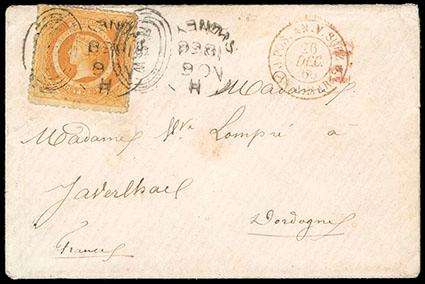 SYDNEY
NO 6
1866
H
NSW
26
DEC.
66
Madame
Madame Vve Lompré à
Javerlhac
Dordogne
France